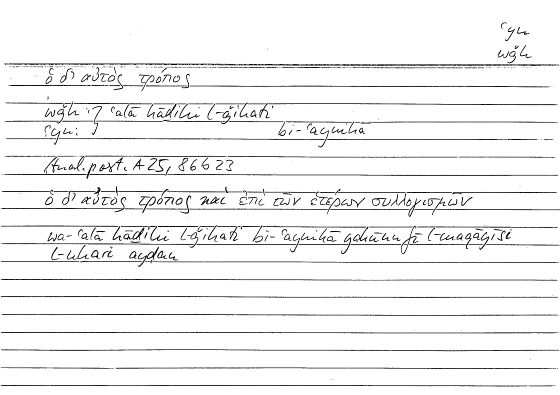 ʿyn
wǧh
ὁ δ' αὐτὸς τρόπος
wǧh: } ʿalā hāḏihi l-ǧihati
ʿyn: } bi-ʿaynihā
Anal. post. A 25, 86b23
ὁ δ' αὐτὸς τρόπος καὶ ἐπὶ τῶν ἑτέρων συλλογισμῶν
wa-ʿalā hāḏihi l-ǧihati bi-ʿaynihā yakūnu fī l-maqāyīsi
l-uḫari ayḍan